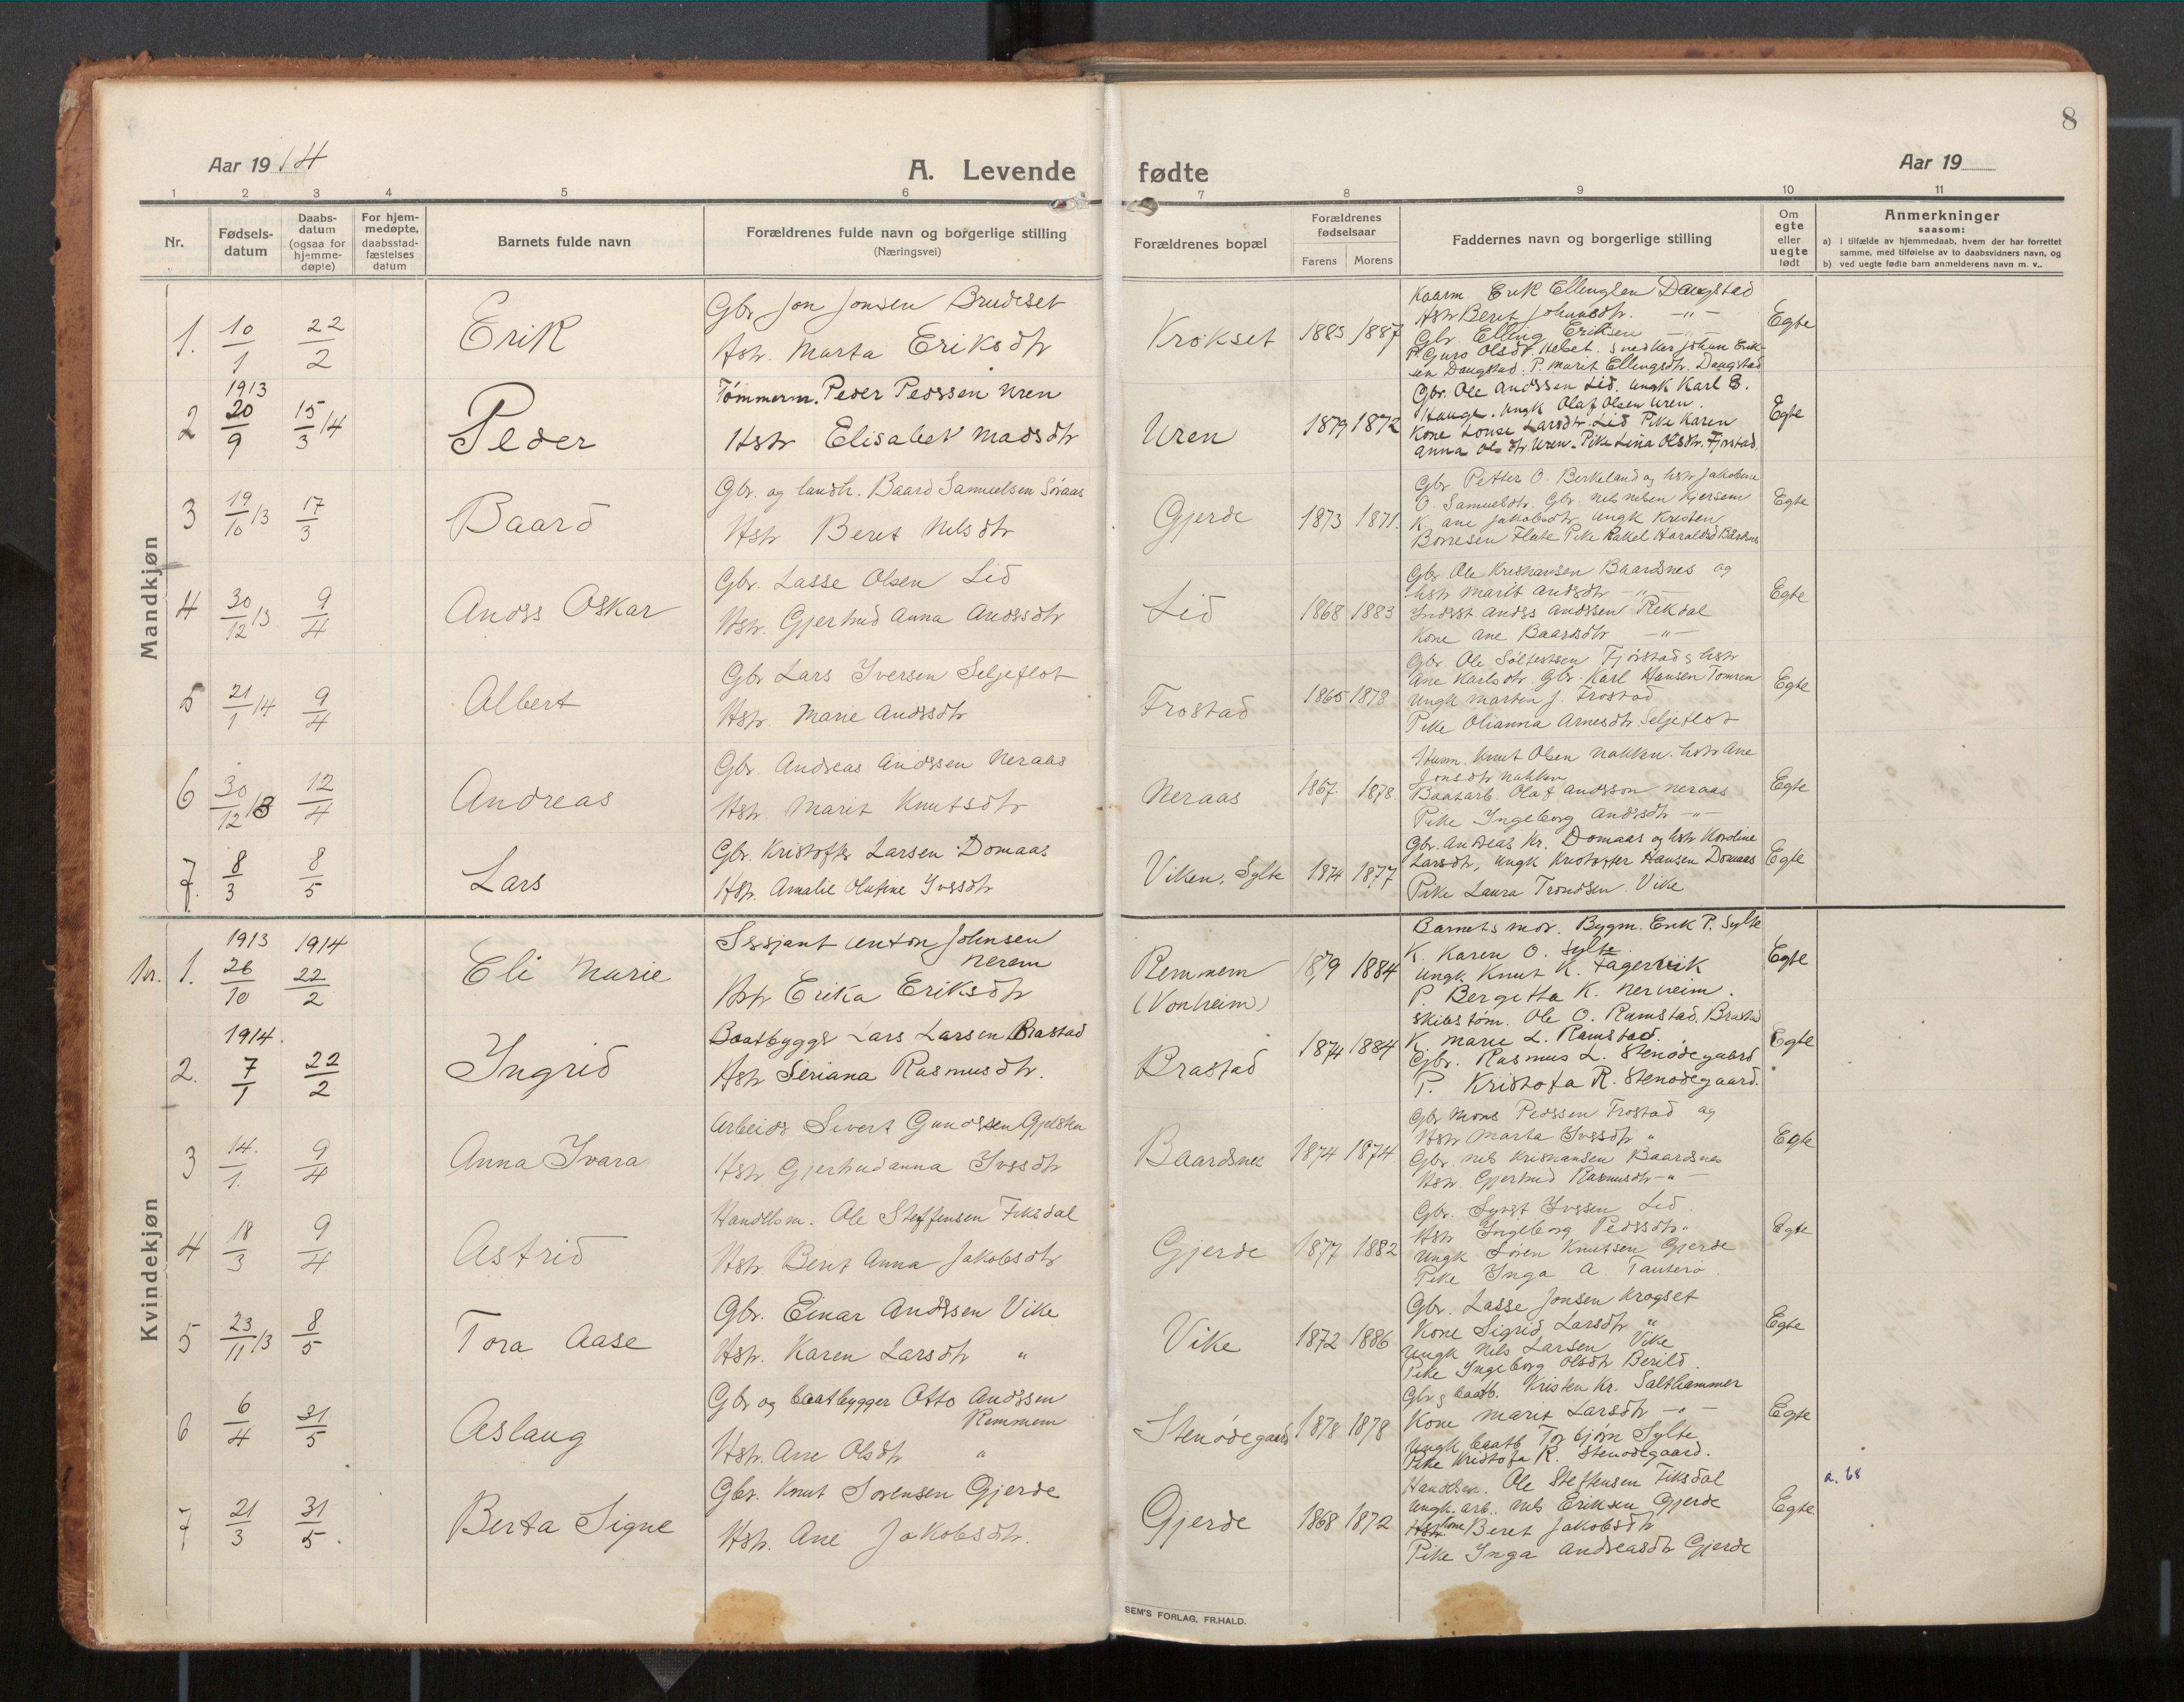 8
Aar 1914
A. Levende fødte
Aar 19
1 2 3 4 5 6 7 8 9 10 11
Nr.
Fødsels-
datum
Daabs-
datum
(ogsaa for
hjemme-
døpte)
For hjem-
medøpte,
daabsstad-
fæstelses
datum
Barnets fulde navn
Forældrenes fulde navn og borgerlige stilling
(Næringsvei)
Forældrenes bopæl
Forældrenes
fødselsaar
Farens Morens
Faddernes navn og borgerlige stilling
Om
egte
eller
uegte
født
Anmerkninger
saasom:
a) i tilfælde av hjemmedaab, hvem der har forrettet
samme, med tilføielse av to daabsvidners navn, og
b) ved uegte fødte barn anmelderens navn m. v..
Mandkjøn
1. 10/1 22/2
Erik
Gbr Jon Jonsen Brudeset
Hstr. Marta Eriksdtr
Krokset 1885 1887
Kaarm. Erik Ellingsen Daugstad
Hstr Beret Johnsdtr. -"-
Gbr. Elling Eriksen -"-
P. Guro Olsdtr. Hebet. Snedker Johan Erik-
sen Daugstad. P. Marit Ellingsdtr. Daugstad
Egte
2 1913 20/9 15/3 14
Peder
Tømmerm. Peder Pedersen Uren
Hstr Elisabet Madsdtr
Uren 1879 1872
Gbr. Ole Anderssen Lid. Ungk Karl E.
Hauge. Ungk Olaf Olsen Uren.
Kone Louise Larsdtr. Lid Pike Karen
Anna Olsdtr. Uren. Pike Lina Olsdtr. Fjørstad
Egte
3 19/10 13 17/3
Baard
Gbr. og landh. Baard Samuelsen Søraas
Hstr Beret Nilsdtr
Gjerde 1873 1871.
Gbr. Petter O. Berkeland og hstr Jakobine
O. Samuelsdtr. Gbr. Nils Nilsen Kjersem
K. Ane Jakobsdtr Ungk Kristen
Borresen Flate Pike Rakel
Egte
4 30/12 13 9/4
Anders Oskar
Gbr. Lasse Olsen Lid
Hstr. Gjertrud Anna Andersdtr
Lid 1868 1883
Gbr Ole Kristiansen Baardsnes og
hstr Marit Andersdtr -"-
Inderst Anders Anderssen Rekdal
Kone Ane Baardsdtr -"-
Egte
5 21/1 14 9/4
Albert
Gbr Lars Iversen Seljeflot
Hstr. Marie Andersdtr
Frostad 1865 1878
Gbr Ole Fjørstad & hstr
Ane Karlsdtr. Gbr. Karl Hansen Tomren
Ungk Martin J. Frostad
Pike Olianna Arnesdtr. Seljeflot
Egte
6 30/12 13 12/4
Andreas
Gbr. Andreas Anderssen Neraas
Hstr. Marit Knutsdtr
Neraas 1867. 1878.
Knut Olsen Nakken. hstr Ane
Jonsdtr Nakken
Baatarb. Olaf Andersson Neraas
Pike Ingeborg Andersdtr -"-
Egte
7. 8/3 8/5
Lars
Gbr. Kristoffer Larsen Domaas
Hstr. Amalie Olufine Iversdtr
Viken, Sylte 1874 1877
Gbr. Andreas Kr. Domaas og hstr Kordine
Larsdtr, Ungk Kristoffer Hansen Domaas
Pike Laura Trondsen. Vike
Egte
Kvindekjøn
Nr. 1. 1913 26/10 1914 22/2
Eli Marie
Sersjant Anton Johnsen
Nerem
Hstr Erika Eriksdtr
Remmem
(Vonheim)
1879 1884
Barnets mor. Bygm. Erik P. Sylte
K. Karen O. Sylte.
Ungk Knut K. Fagervik
P. Bergitta K. Nerheim.
Egte
2. 1914. 7/1 22/2
Ingrid
Baatbygger Lars Larsen Brastad
Hstr Seriana Rasmusdtr.
Brastad 1874 1884
Skibstøm. Ole O. Ramstad. Brastad
K. Marie L. Ramstad.
Gbr. Rasmus L. Stenødegaard
P. Kristofa R. Stenødegaard.
Egte
3 14./1. 9/4
Anna Ivara
Arbeider Sivert Gundersen Gjelsten
Hstr Gjertrudanna Iversdtr
Baardsnes 1874 1874
Gbr Mons Pederssen Frostad og
Hstr Marta Iversdtr "
Gbr. Nils Kristiansen Baardsnes
Hstr. Gjertrud Rasmusdtr -"-
Egte
4 18/3 9/4
Astrid
Handelsm. Ole Steffensen Fiksdal
Hstr. Berit Anna Jakobsdtr
Gjerde 1877 1882
Gbr. Syvert Iverssen Lid.
Hstr Ingeborg Pedersdtr "
Ungk Søren Knutsen Gjerde
Pike Inga A. Tauterø
Egte
5 23/11 13 8/5
Tora Aase
Gbr. Einar Anderssen Vike
Hstr. Karen Larsdtr "
Vike 1872 1886
Gbr. Lasse Jonsen Krogset
Kone Sigrid Larsdtr "
Ungk Nils Larsen Vike
Pike Ingeborg Olsdtr Berild.
Egte
6 6/4 31/5
Aslaug
Gbr og baatbygger Otto Anderssen
Remmem
Hstr. Ane Olsdtr "
Stenødegaard 1878 1878
Gbr & baatb. Kristen Kr. Salthammer
Kone Marit Larsdtr -"-
Ungk baatb Torbjørn Sylte
Pike Kristofa R. Stenødegaard.
Egte
7 21/3 31/5.
Berta Signe
Gbr. Knut Sørensen Gjerde
Hstr. Ane Jakobsdtr.
Gjerde 1868 1872
Handelsm. Ole Steffensen Fiksdal
Ungk. arb. Nils Eriksen Gjerde
Kone Beret Jakobsdtr
Pike Inga Andreasdtr Gjerde
Egte
a. 68
SEM'S FORLAG, FR.HALD.